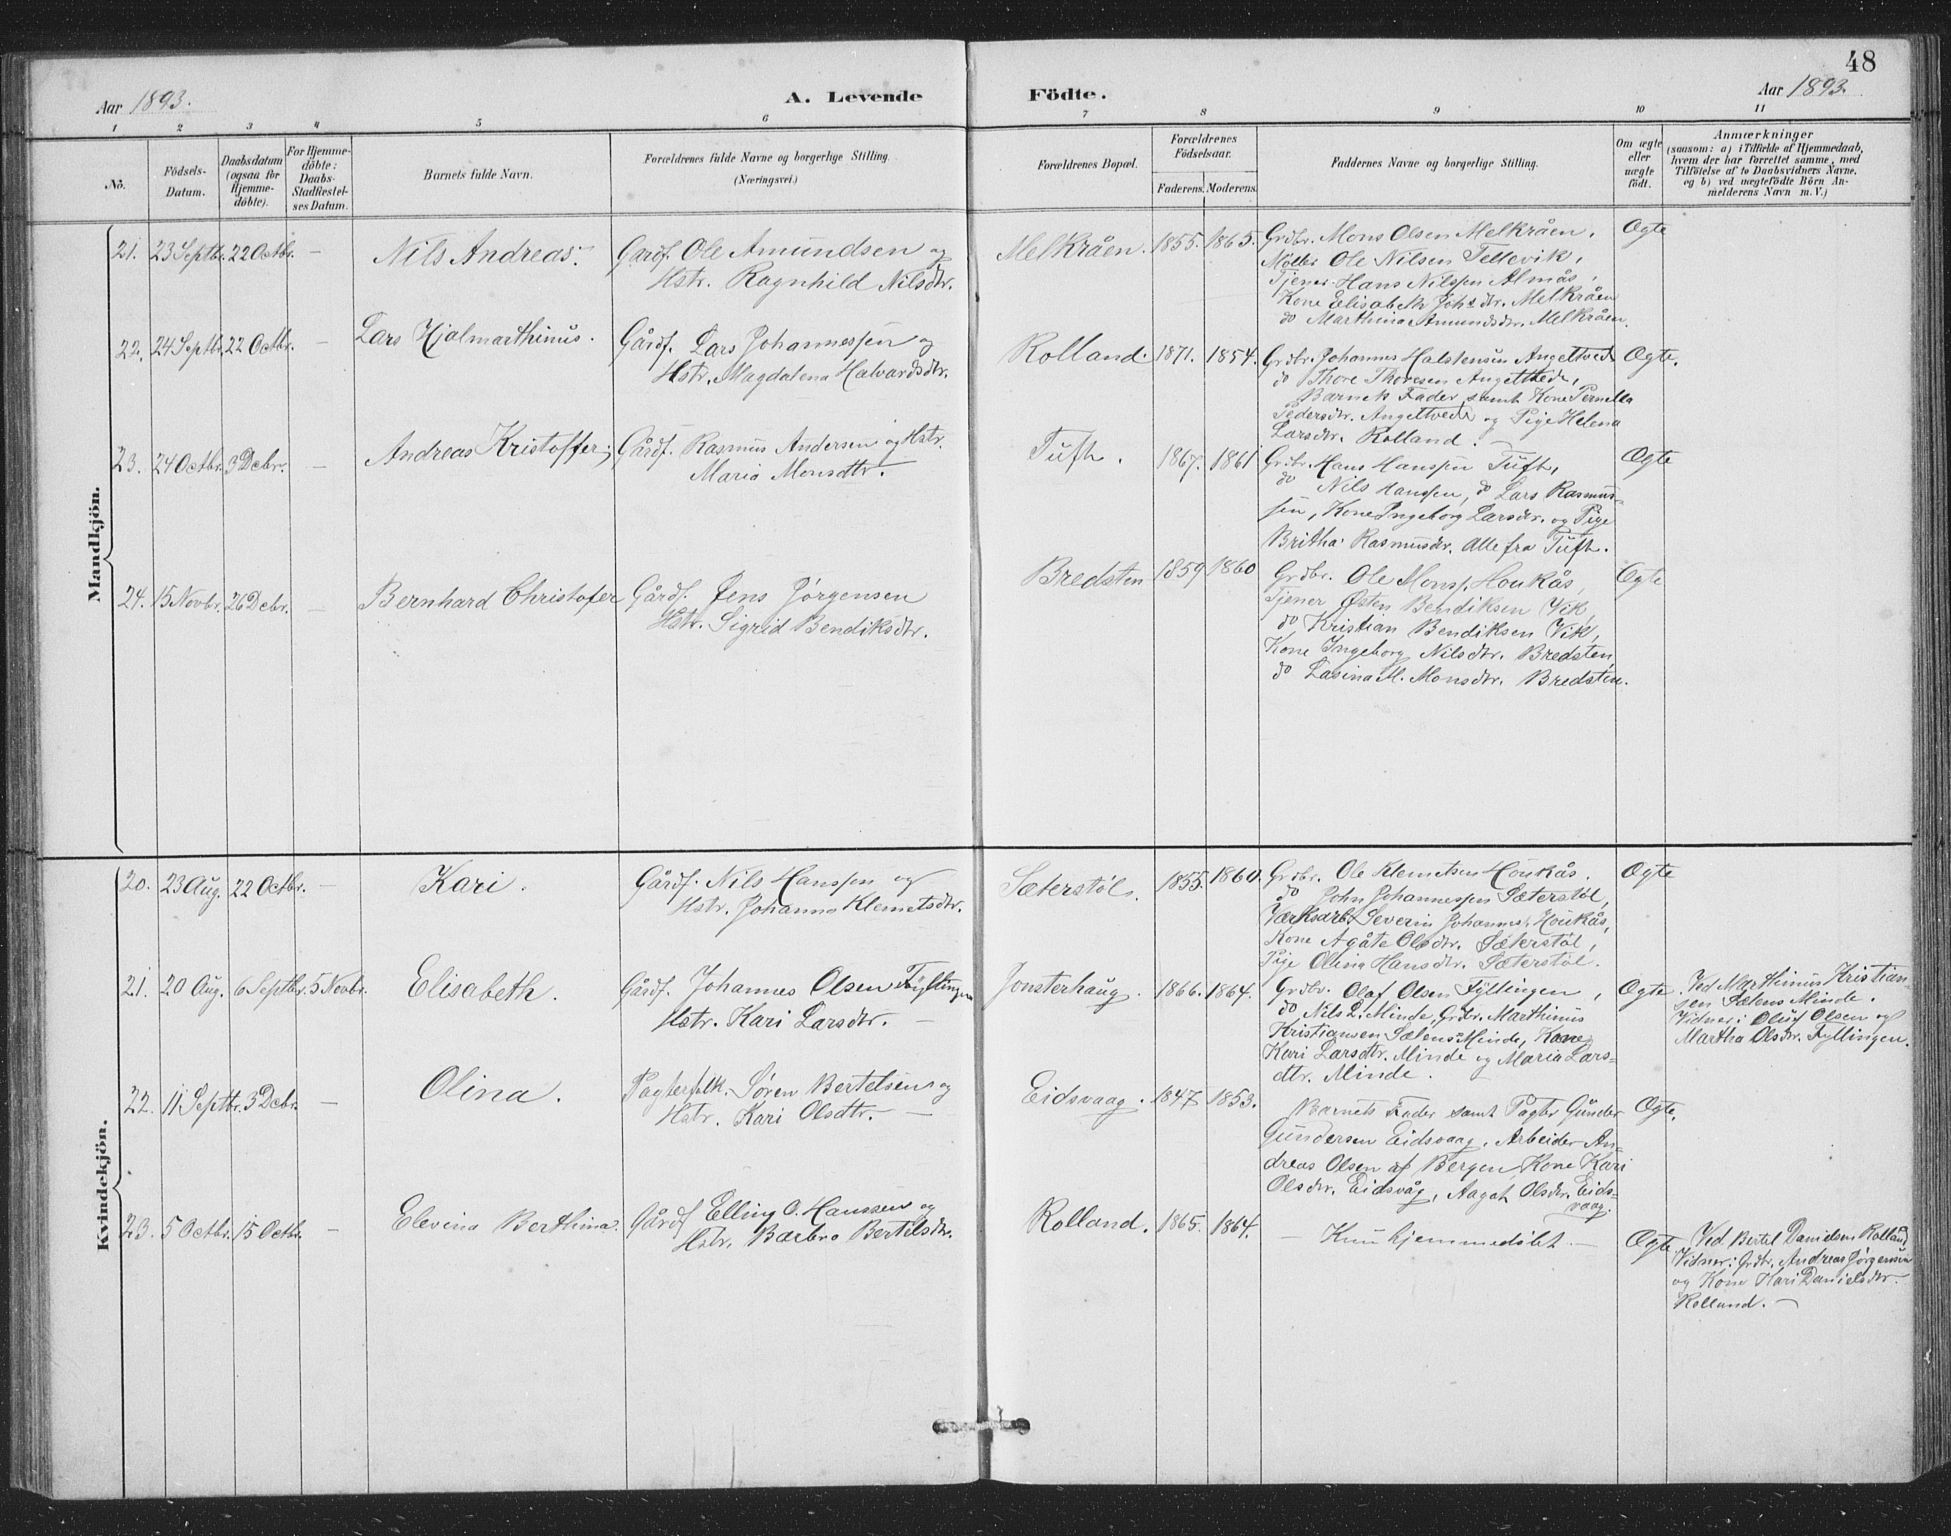 48
Aar 1893.
A. Levende Födte.
Aar 1893.
1 2 3 4 5 6 7 8 9 10 11
No.
Födsels-
Datum.
Daabsdatum
(ogsaa for
Hjemme-
döbte).
For Hjemme-
döbte:
Daabs-
Stadfæstel-
ses Datum.
Barnets fulde Navn.
Forældrenes fulde Navne og borgerlige Stilling.
(Næringsvei.)
Forældrenes Bopæl.
Forældrenes
Födselsaar.
Faderens. Moderens.
Faddernes Navne og borgerlige Stilling.
Om ægte
eller
uægte
födt.
Anmærkninger
(saasom: a) i Tilfælde af Hjemmedaab,
hvem der har forrettet samme, med
Tilföielse af to Daabsvidners Navne,
og b) ved uægtefödte Börn An-
melderens Navn m. V.)
Mandkjön.
21. 23 Septbr. 22 Octbr. —
Nils Andreas.
Gårdf. Ole Amundsen og
Hstr. Ragnhild Nilsdtr.
Melkråen. 1855. 1865.
Grdbr. Mons Olsen Melkråen,
Møller Ole Nilsen Tellevik,
Tjener Hans Nilssen Almås,
Kone Elisabeth Johsdtr. Melkråen
do Marthina Amundsdtr. Melkråen.
Ægte
22. 24 Septbr. 22 Octbr. —
Lars Hjalmarthinus.
Gårdf. Lars Johannessen og
Hstr. Magdalena Halvardsdtr.
Rolland. 1871. 1854.
Grdbr. Johannes Halstensen Angeltvedt
do Thore Thoresen Angeltvedt,
Barnets Fader, samt Kone Pernella
Pedersdtr. Angeltvedt og Pige Helena
Larsdtr. Rolland.
Ægte.
23. 24 Octbr. 3 Dcbr. —
Andreas Kristoffer,
Gårdf. Rasmus Andersen og Hstr.
Maria Monsdtr.
Tuft. 1867. 1861
Grdbr. Hans Hanssen Tuft,
do Nils Hanssen, do Lars Rasmus-
sen, Kone Ingeborg Larsdtr. og Pige
Britha Rasmusdtr. Alle fra Tuft.
Ægte
24. 15 Novbr. 26 Dcbr. —
Bernhard Christofer
Gårdf. Jens Jørgensen
Hstr. Sigrid Bendiksdtr.
Bredsten 1859 1860
Grdbr. Ole Monss. Houkås,
Tjener Østen Bendiksen Vik,
do Kristian Bendiksen Vik,
Kone Ingeborg Nilsdtr. Bredsten,
do Lasina M. Monsdtr. Bredsten.
Ægte
Kvindekjön.
20. 23 Aug. 22 Octbr. —
Kari.
Gårdf. Nils Hanssen og
Hstr. Johanna Klemetsdtr.
Sæterstøl. 1855. 1860.
Grdbr. Ole Klemetsen Houkås.
do John Johannessen Sæterstøl,
Værksarb. Severin Johannes. Houkås,
Kone Agåte Olsdtr. Sæterstøl,
Pige Olina Hansdtr. Sæterstøl.
Ægte
21. 20 Aug. 6 Septbr. 5 Novbr.
Elisabeth.
Gårdf. Johannes Olsen Fyllingen
Hstr. Kari Larsdtr. —
Jonsterhaug. 1866. 1864.
Grdbr. Olaf Olsen Fyllingen,
do Nils L. Minde, Grdbr. Marthinus
Kristiansen Sælens Minde, Kone
Kari Larsdtr. Minde og Maria Lars-
dtr. Minde.
Ægte
Ved Marthinus Kristian-
sen Sælens Minde.
Vidner: Oluf Olsen og
Martha Olsdtr. Fyllingen.
22. 11 Septbr. 3 Dcbr. —
Olina.
Pagterfolk Søren Bertelsen og
Hstr. Kari Olsdtr. —
Eidsvaag. 1847 1853.
Barnets Fader samt Pagter Gunder
Gundersen Eidsvaag, Arbeider An-
dreas Olsen af Bergen, Kone Kari
Olsdtr. Eidsvåg, Aagåt Olsdtr. Eids-
vaag.
Ægte.
23. 5 Octbr. 15 Octbr. —
Elevina Berthina.
Gårdf Elling O. Hanssen og
Hstr. Barbro Bertelsdtr.
Rolland. 1865. 1864.
— Kun hjemmedøbt —
Ægte
Ved Bertel Danielsen Rolland
Vidner: Grdbr. Andreas Jørgensen
og Kone Kari Danielsdtr.
Rolland. —